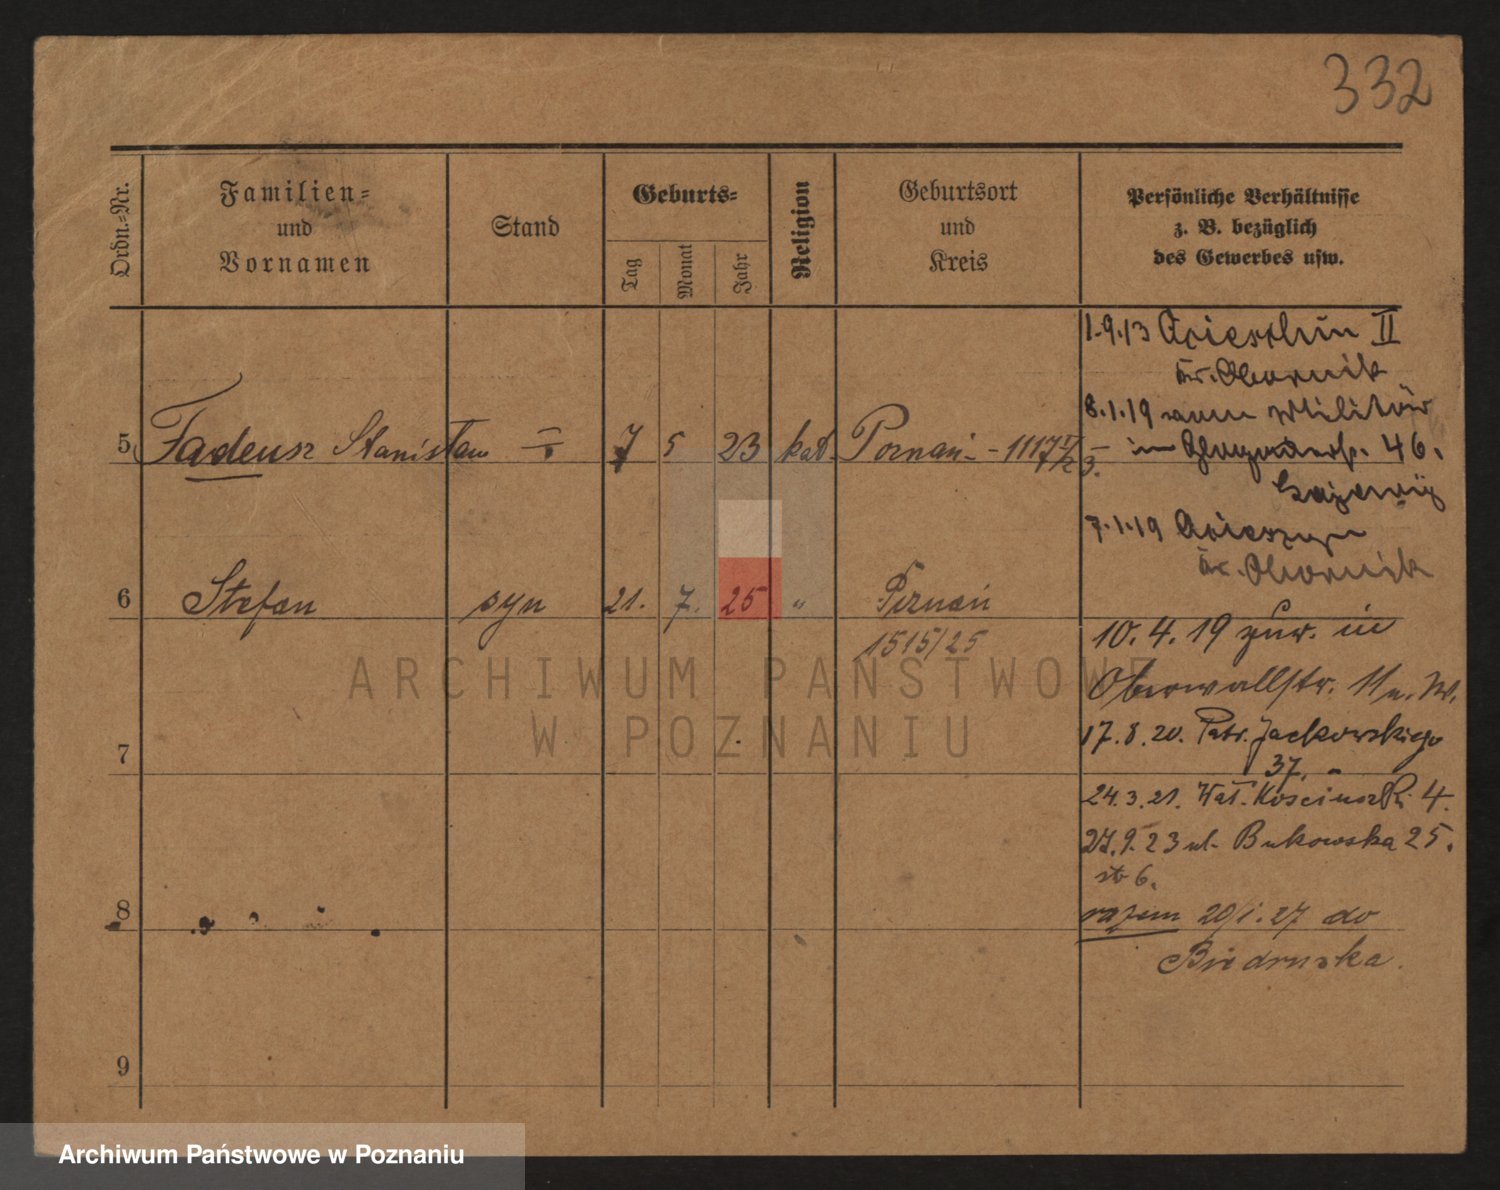 332
Ordn.-Nr.
Familien-
und
Vornamen
Stand
Geburts-
Tag
Monat
Jahr
Religion
Geburtsort
und
Kreis
Persönliche Verhältnisse
z. B. bezüglich
des Gewerbes usw.
1.9.13 II
Kr. Obornik
8.1.19 zum Militär
5 Tadeusz Stanisław 7 5 23 kat. Poznań - 1117
in 46.
7.1.19
Kr. Obornik
6 Stefan syn 21. 7. 25 " Poznań
1515/25
10. 4. 19 zur. in
Oberwallstr. 11
7
17. 8. 20. Patr. Jackowskiego
37.
24. 3. 21. Wał. Kościuszki 4.
27. 9. 23 ul. Bukowska 25.
6.
8
razem 20/1. 27 do
Biedruska.
9
ARCHIWUM PAŃSTWOWE
W POZNANIU
Archiwum Państwowe w Poznaniu